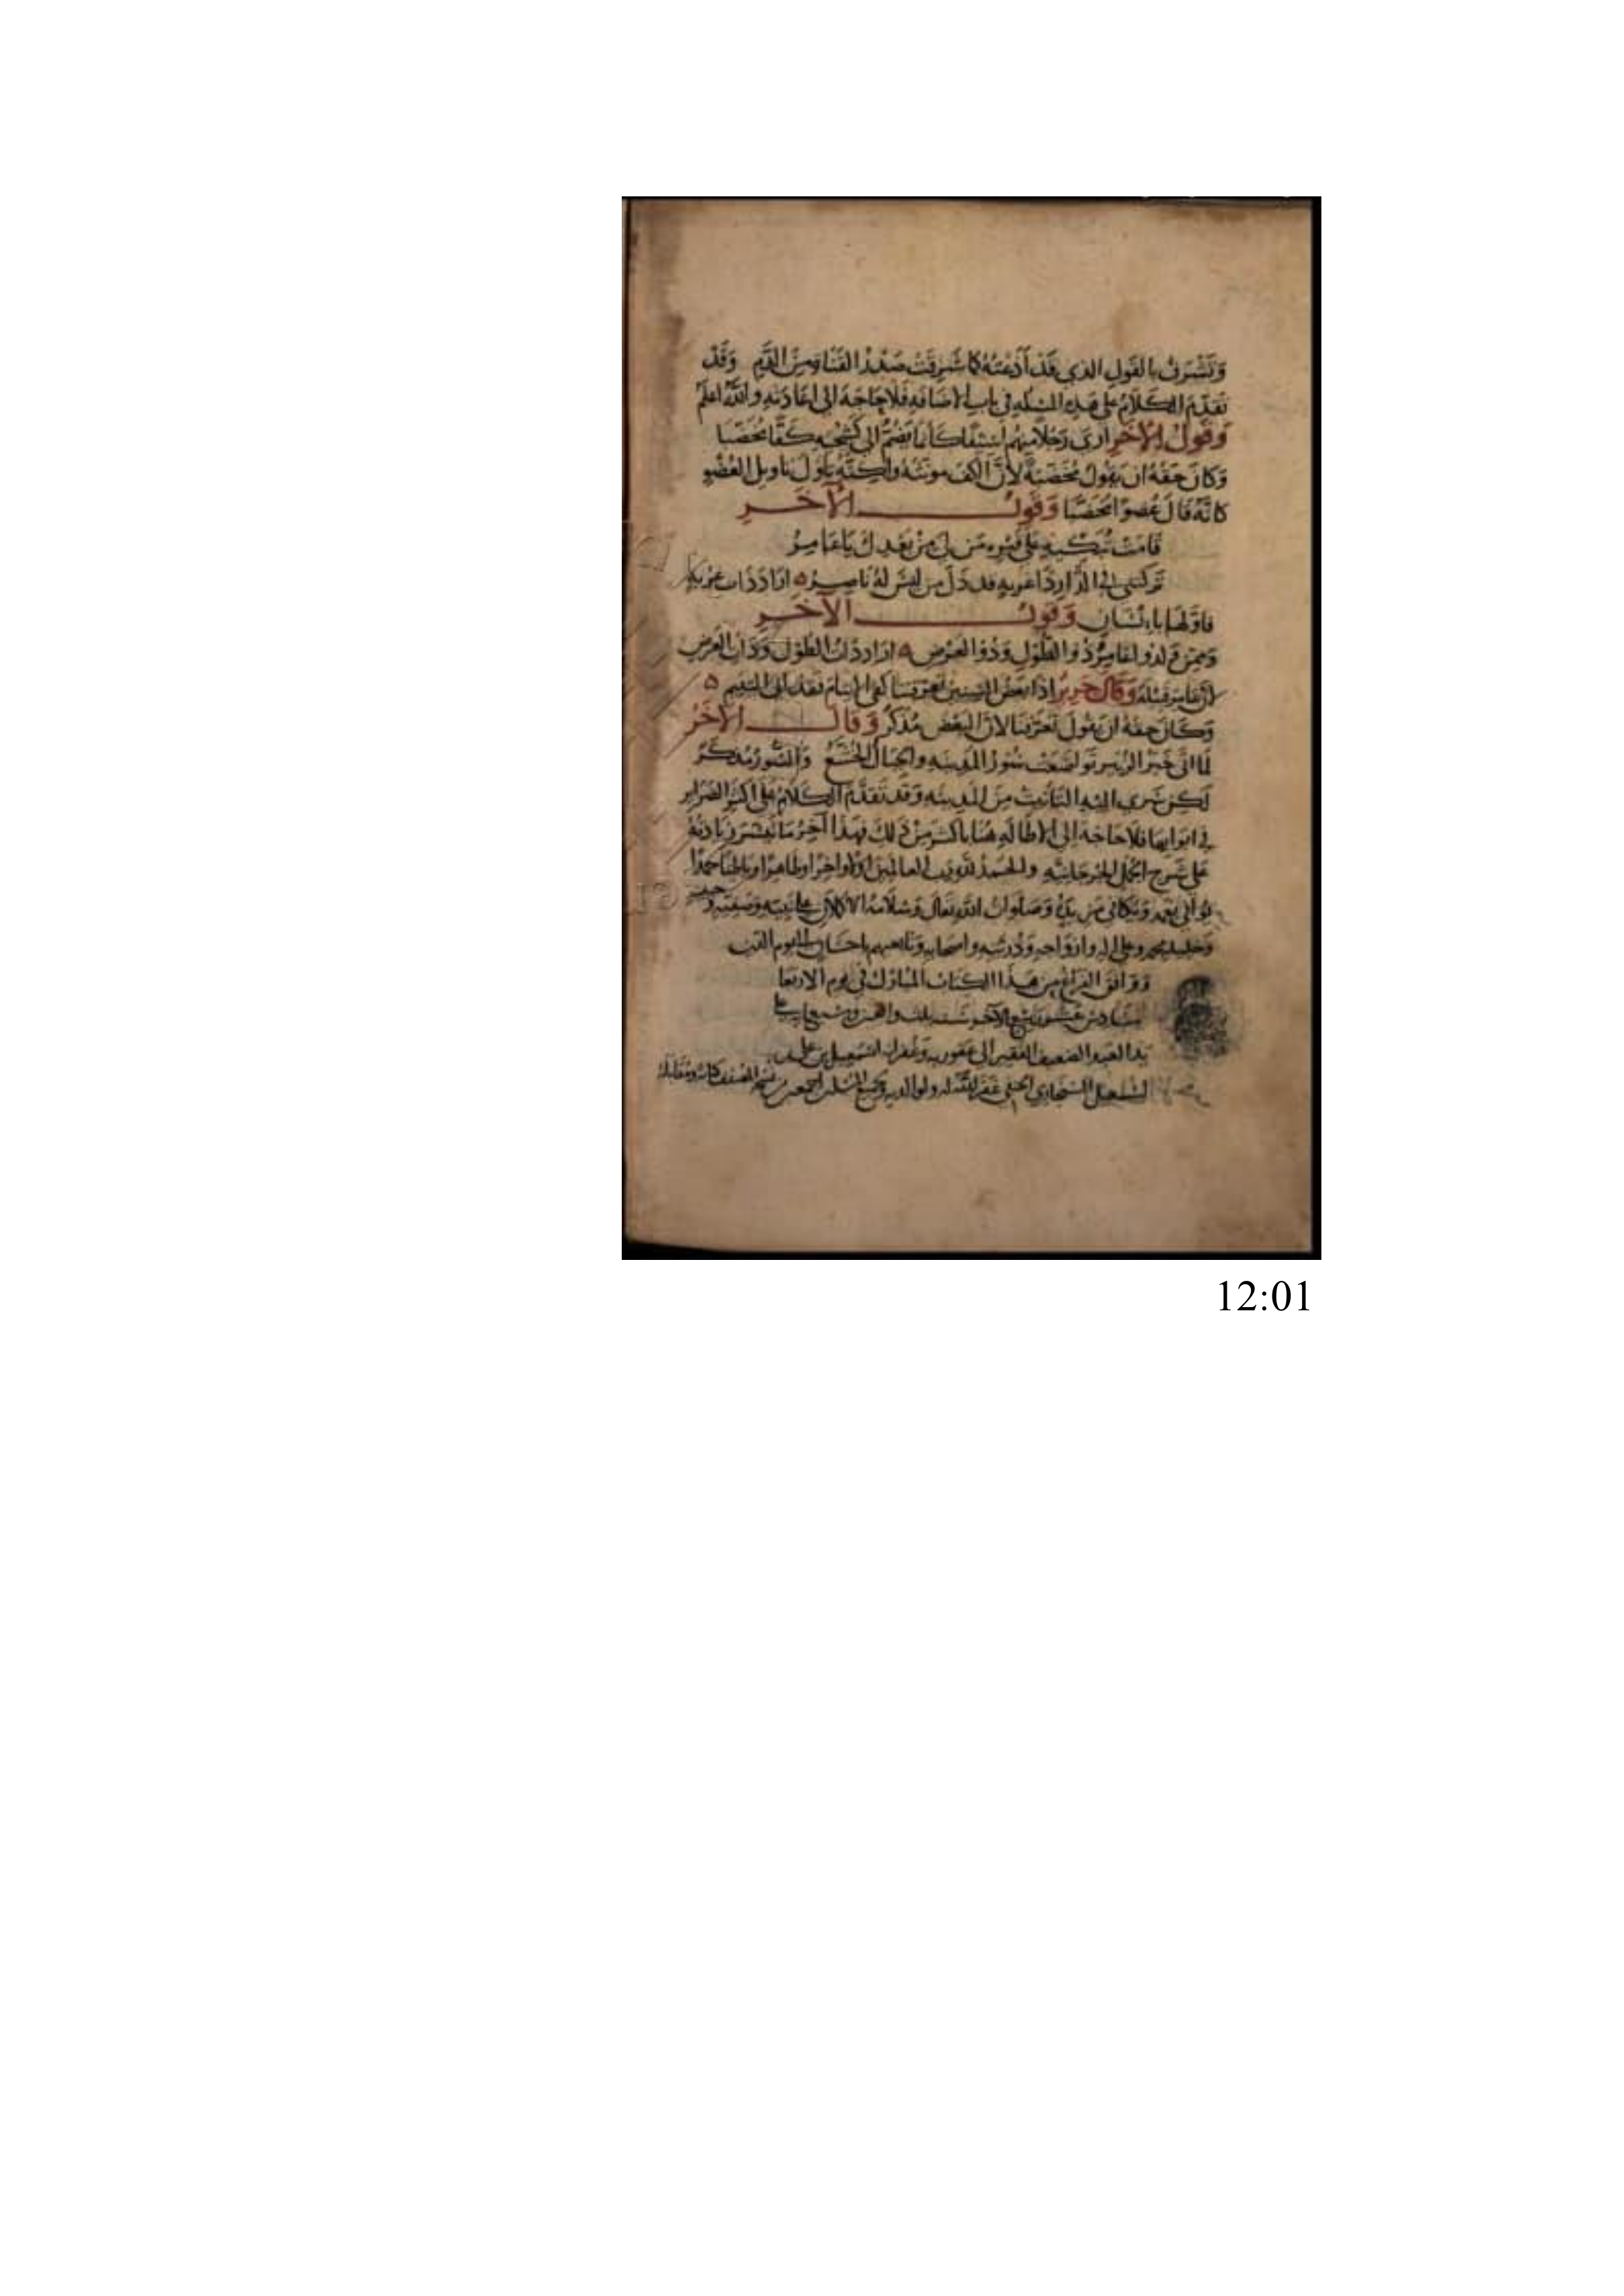 وَتَشْرَقُ بالقَولِ الذي قَدْ أَذَعْتَهُ كما شَرِقَتْ صَدْرُ القَنَاةِ مِنَ الدَّمِ وَقَدْ
تقدّم الكلامُ على هذه المسئله في باب الاضافه فلا حاجَة الى اعادته والله اعلم
وَقولُ الآخر ارى رَجُلًا مِنهُم اسيفًا كأنما يَضُمُّ الى كَشْحَيهِ كَفًّا مُخَضَّبا
وَكان حقهُ ان يقول مُخَضّبَةً لأنَّ الكفّ مونثه ولكنّه يأول تاويل العُضْو
كانّهُ قالَ عُضوًا مخضّبًا وَقَولُ الآخَرِ
قَامَتْ تُبَكّيهِ على قَبْرِهِ مَن لِيَ مِنْ بَعْدِكَ يَا عَامِرُ
تَركتني في الدّار ذا غربةٍ قد ذلّ من ليسَ لهُ ناصِرُ ارادَ ذات غربة
فاوّلها بانسان وَقولُ الآخَرِ
وممن ولدوا عامرُ ذُو الطُّولِ وَذُوا العَرْضِ ارادَ ذاتُ الطُول وَذات العرضِ
لأن عامر قبيلة وَقال جرير اذا بعضُ السنين تعرقتنا كفى الايتام فقد ابي اليتيم
وَكان حقهُ ان يقول تعرّقنا لانّ البعض مُذكرٌ وَقالَ الآخَرُ
لما اتى خَبَرُ الزُّبير تَواضعَتْ سُورُ المدينه والجبالُ الخُشَّعُ وَالسُّورُ مُذكّرٌ
لكن سَرى اليه التأنيث مِنَ المدينه وقد تَقَدَّمَ الكلامُ على اكثر الضراير
في ابوابها فلا حاجة الى الاطالةِ هُنا باكثر مِنْ ذلكَ فهذا آخِرُ مَا تيسّر زيادتهُ
على شرح الجُمل الجُرجانيّه والحمدُ لله رب العالمين اولا واخرا وظاهرا وباطنا حمدًا
يُوافي نِعَمه وَيُكافي مَزيدَهُ وَصَلواتُ الله تعالى وسلامهُ الاكملان على نبيه وصفيّه و
وخليله محمد وعلى اله وازواجه وذُرّيّته واصحابه وتابعيهم باحسان الى يوم الدين
وَوافق الفراغ من هذا الكتاب المبارك في يوم الاربعا
سادس عشر ربيع الآخر سنه ثلث وسبعمايه على
يد العبد الضعيف الفقير الى عفو ربه وغفرانه اسمعيل بن علي
اسمعيل السنجاري الحنفي غفر الله له ولوالديه وجميع المسلمين اجمعين
12:01